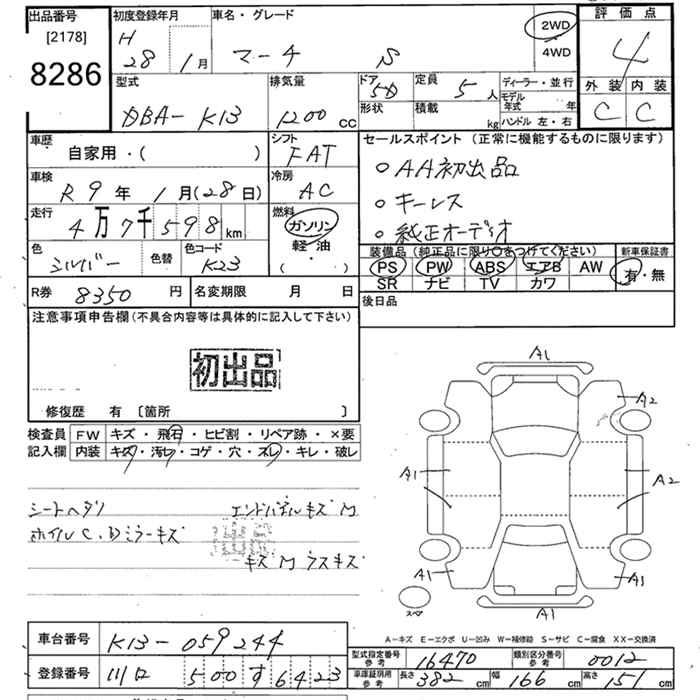 出品番号 [2178] 8286
初度登録年月 H 28年 1月
車名・グレード マーチ S
2WD・4WD
評価点 4
外装 C 内装 C
型式 DBA-K13
排気量 1200 cc
ドア 5D 形状
定員 5人 積載 kg
ディーラー・並行
モデル年式 年
ハンドル 左・右
車歴 自家用・( )
シフト FAT
セールスポイント (正常に機能するものに限ります)
○AA初出品
○キーレス
○純正オーディオ
車検 R 9年 1月(28日)
冷房 AC
走行 4万7千598km
燃料 ガソリン・軽油・( )
色 シルバー 色替 色コード K23
装備品 (純正品に限り○をつけてください)
PS PW ABS エアB AW
SR ナビ TV カワ
新車保証書 有・無
R券 8350円 名変期限 月 日
後日品
注意事項申告欄 (不具合内容等は具体的に記入して下さい)
初出品
修復歴 有 [箇所 ]
検査員記入欄
FW キズ・飛石・ヒビ割・リペア跡・×要
内装 キズ・汚レ・コゲ・穴・スレ・キレ・破レ
シートヘタリ エンドパネルキズM
ホイルC、Dミラーキズ
キズM ラスキズ
A1
A2
A1 A2
A1 A1
スペア A1
A-キズ E-エクボ U-凹み W-補修跡 S-サビ C-腐食 XX-交換済
車台番号 K13-059244
登録番号 川口 500 す 6423
型式指定番号 参考 16470 類別区分番号 参考 0012
車庫証明用 参考 長さ 382cm 幅 166cm 高さ 151cm